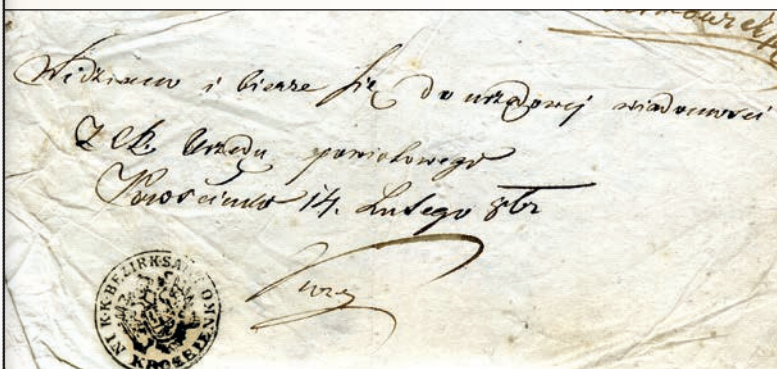 Widziano i bierze się do urzędowej wiadomości
Z CK. Urzędu powiatowego
Krościenko 14. Lutego 862
K.K. BEZIRKSAMT IN KROSCIENKO